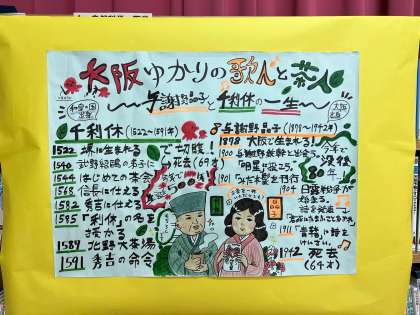 大阪ゆかりの歌人と茶人
〜与謝野晶子と千利休の一生〜
千利休(1522〜1591年)
1522 堺に生まれる!
1540 武野紹鴎の弟子に
1544 はじめての茶会
1568 信長に仕える
1582 秀吉に仕える
1585 「利休」の名を
授かる
1587 北野大茶湯
1591 秀吉の命令
で切腹!
死去(69才)
与謝野晶子(1878〜1942年)
1878 大阪で生まれる!
1900 与謝野鉄幹と出会う。
「明星」
1901 「みだれ髪」を刊行
1904 日露戦争が
始まる。
詩を発表
「君死にたまふことなかれ」
1911 「青鞜」に詩を
1942 死去
(64才)
今年で
没後
80年!